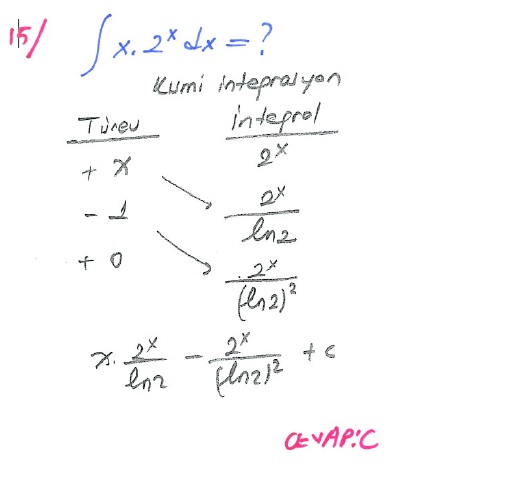 15/ ∫x.2ˣdx=?
Kısmi integrasyon
Türev integral
+ x 2ˣ
- 1 2ˣ/ln2
+ 0 2ˣ/(ln2)²
x. 2ˣ/ln2 - 2ˣ/(ln2)² + c
CEVAP:C